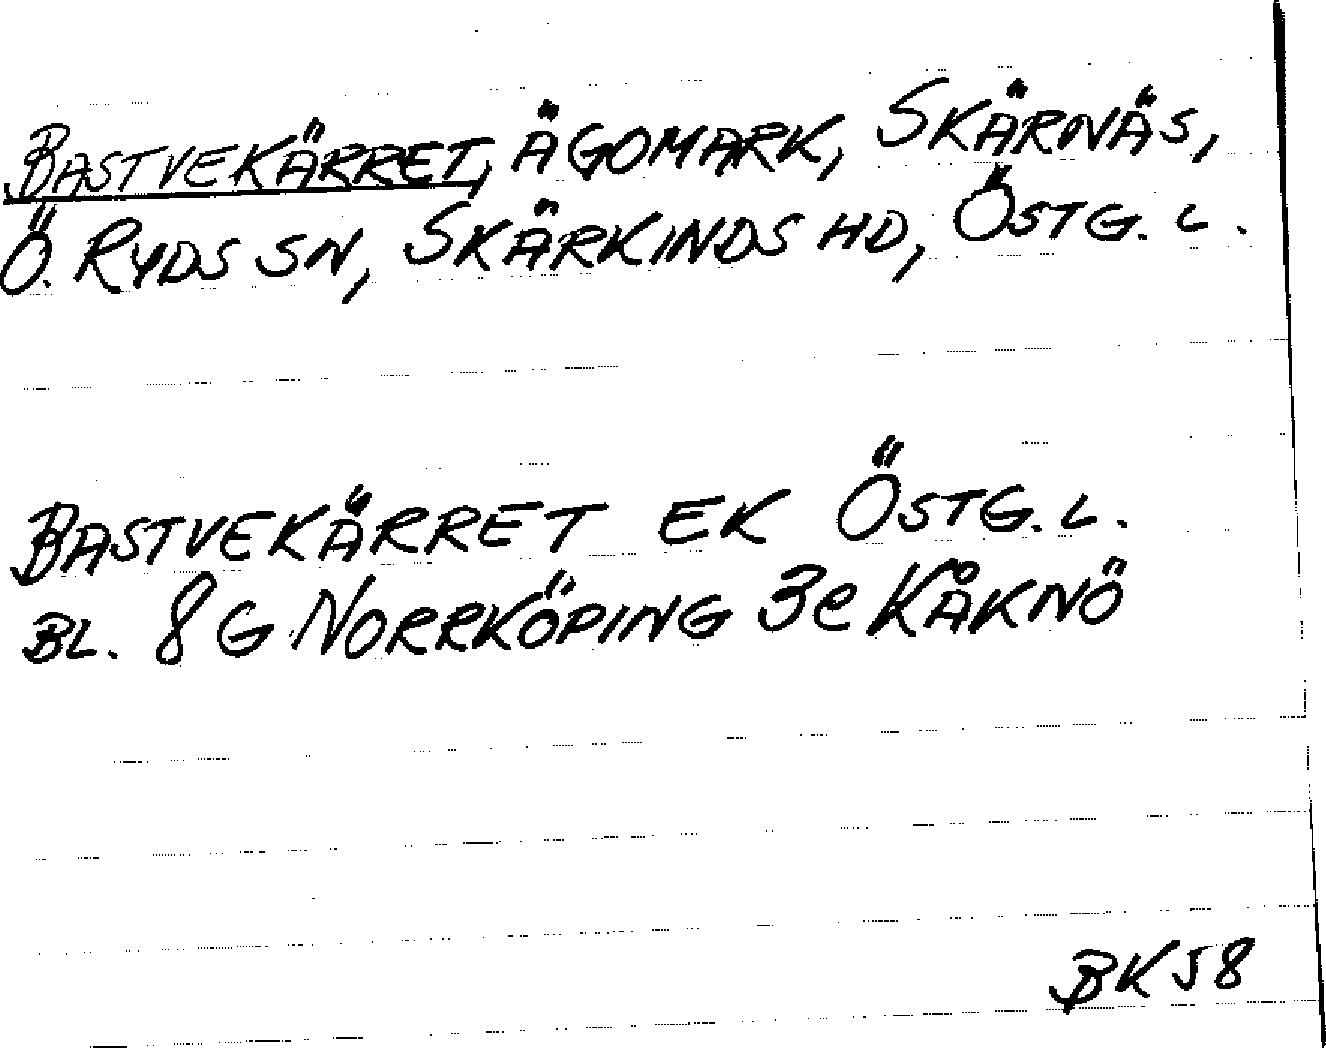 BASTVEKÄRRET, ÄGOMARK, SKÄRNÄS,
Ö. RYDS SN, SKÄRKINDS HD, ÖSTG. L.
BASTVEKÄRRET EK ÖSTG. L.
BL. 8 G NORRKÖPING 3e KÅKNÖ
BK 58